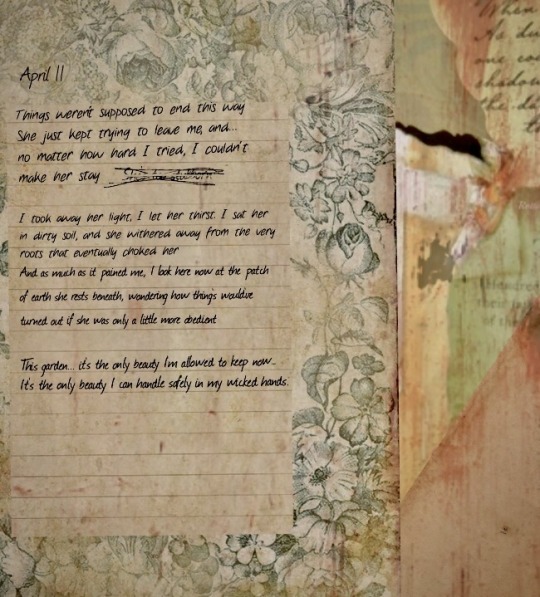 April 11
Things weren't supposed to end this way
She just kept trying to leave me, and...
no matter how hard I tried, I couldn't
make her stay
I took away her light, I let her thirst. I sat her
in dirty soil, and she withered away from the very
roots that eventually choked her
And as much as it pained me, I look here now at the patch
of earth she rests beneath, wondering how things would've
turned out if she was only a little more obedient
This garden... it's the only beauty I'm allowed to keep now...
It's the only beauty I can handle safely in my wicked hands.
When
No
one
shadow
the
Hundred
of the